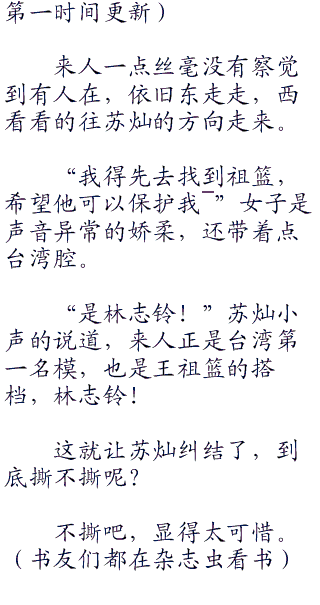 第一时间更新）
来人一点丝毫没有察觉
到有人在，依旧东走走，西
看看的往苏灿的方向走来。
“我得先去找到祖篮，
希望他可以保护我¯”女子是
声音异常的娇柔，还带着点
台湾腔。
“是林志铃！”苏灿小
声的说道，来人正是台湾第
一名模，也是王祖篮的搭
档，林志铃！
这就让苏灿纠结了，到
底撕不撕呢？
不撕吧，显得太可惜。
（书友们都在杂志虫看书）